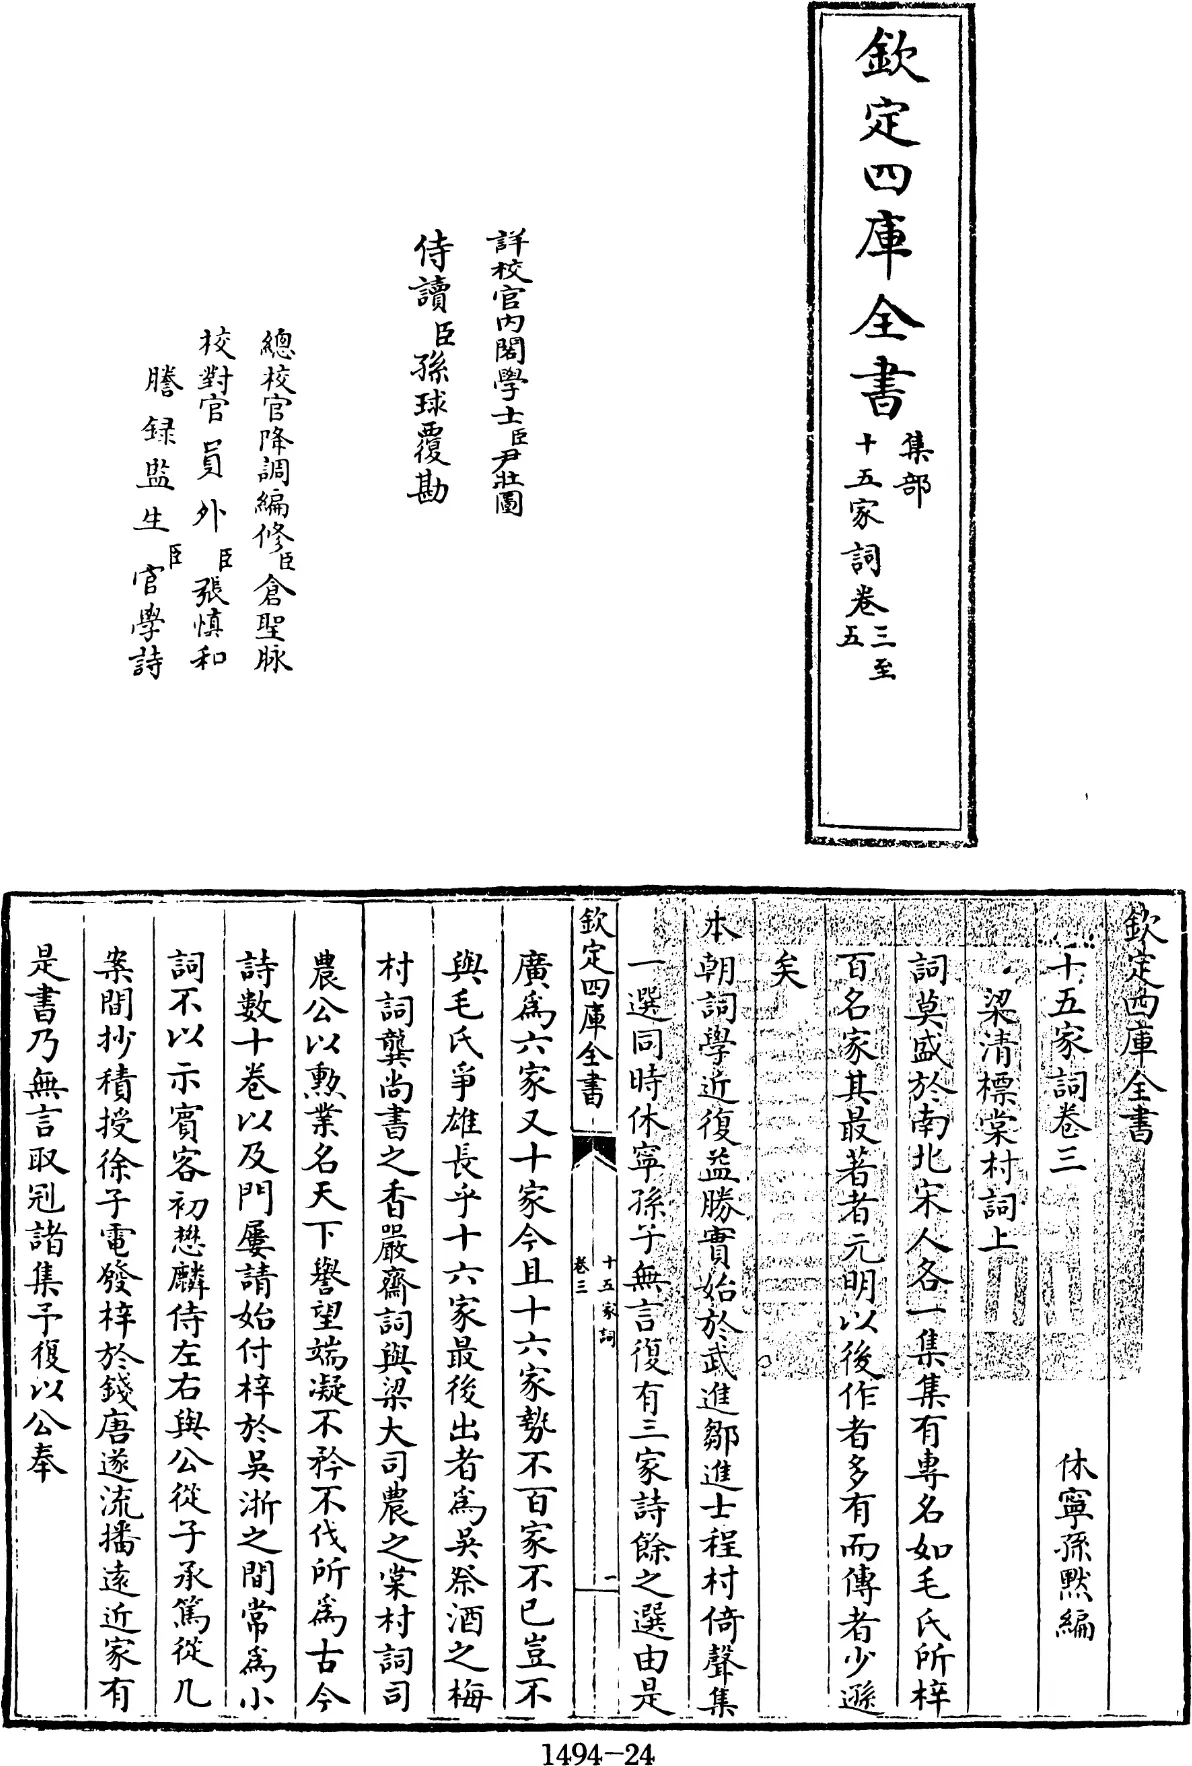 欽定四庫全書
集部
十五家詞卷三至
五
詳校官內閣學士臣尹壯圖
侍讀臣孫球覆勘
總校官降調編修臣倉聖脉
校對官員外臣張慎和
謄録監生臣官學詩
欽定四庫全書
十五家詞卷三
休寧孫默編
梁清標棠村詞上
詞莫盛於南北宋人各一集集有專名如毛氏所梓
百名家其最著者元明以後作者多有而傳者少遜
矣
本朝詞學近復益勝實始於武進鄒進士程村倚聲集
一選同時休寧孫子無言復有三家詩餘之選由是
欽定四庫全書
十五家詞
卷三
一
廣為六家又十家今且十六家勢不百家不已豈不
與毛氏爭雄長乎十六家最後出者為吳祭酒之梅
村詞龔尚書之香嚴齋詞與梁大司農之棠村詞司
農公以勲業名天下譽望端凝不矜不伐所為古今
詩數十卷以及門屢請始付梓於吳浙之間常為小
詞不以示賓客初懋麟侍左右與公從子承篤從几
案間抄積授徐子電發梓於錢唐遂流播遠近家有
是書乃無言取冠諸集予復以公奉
1494-24